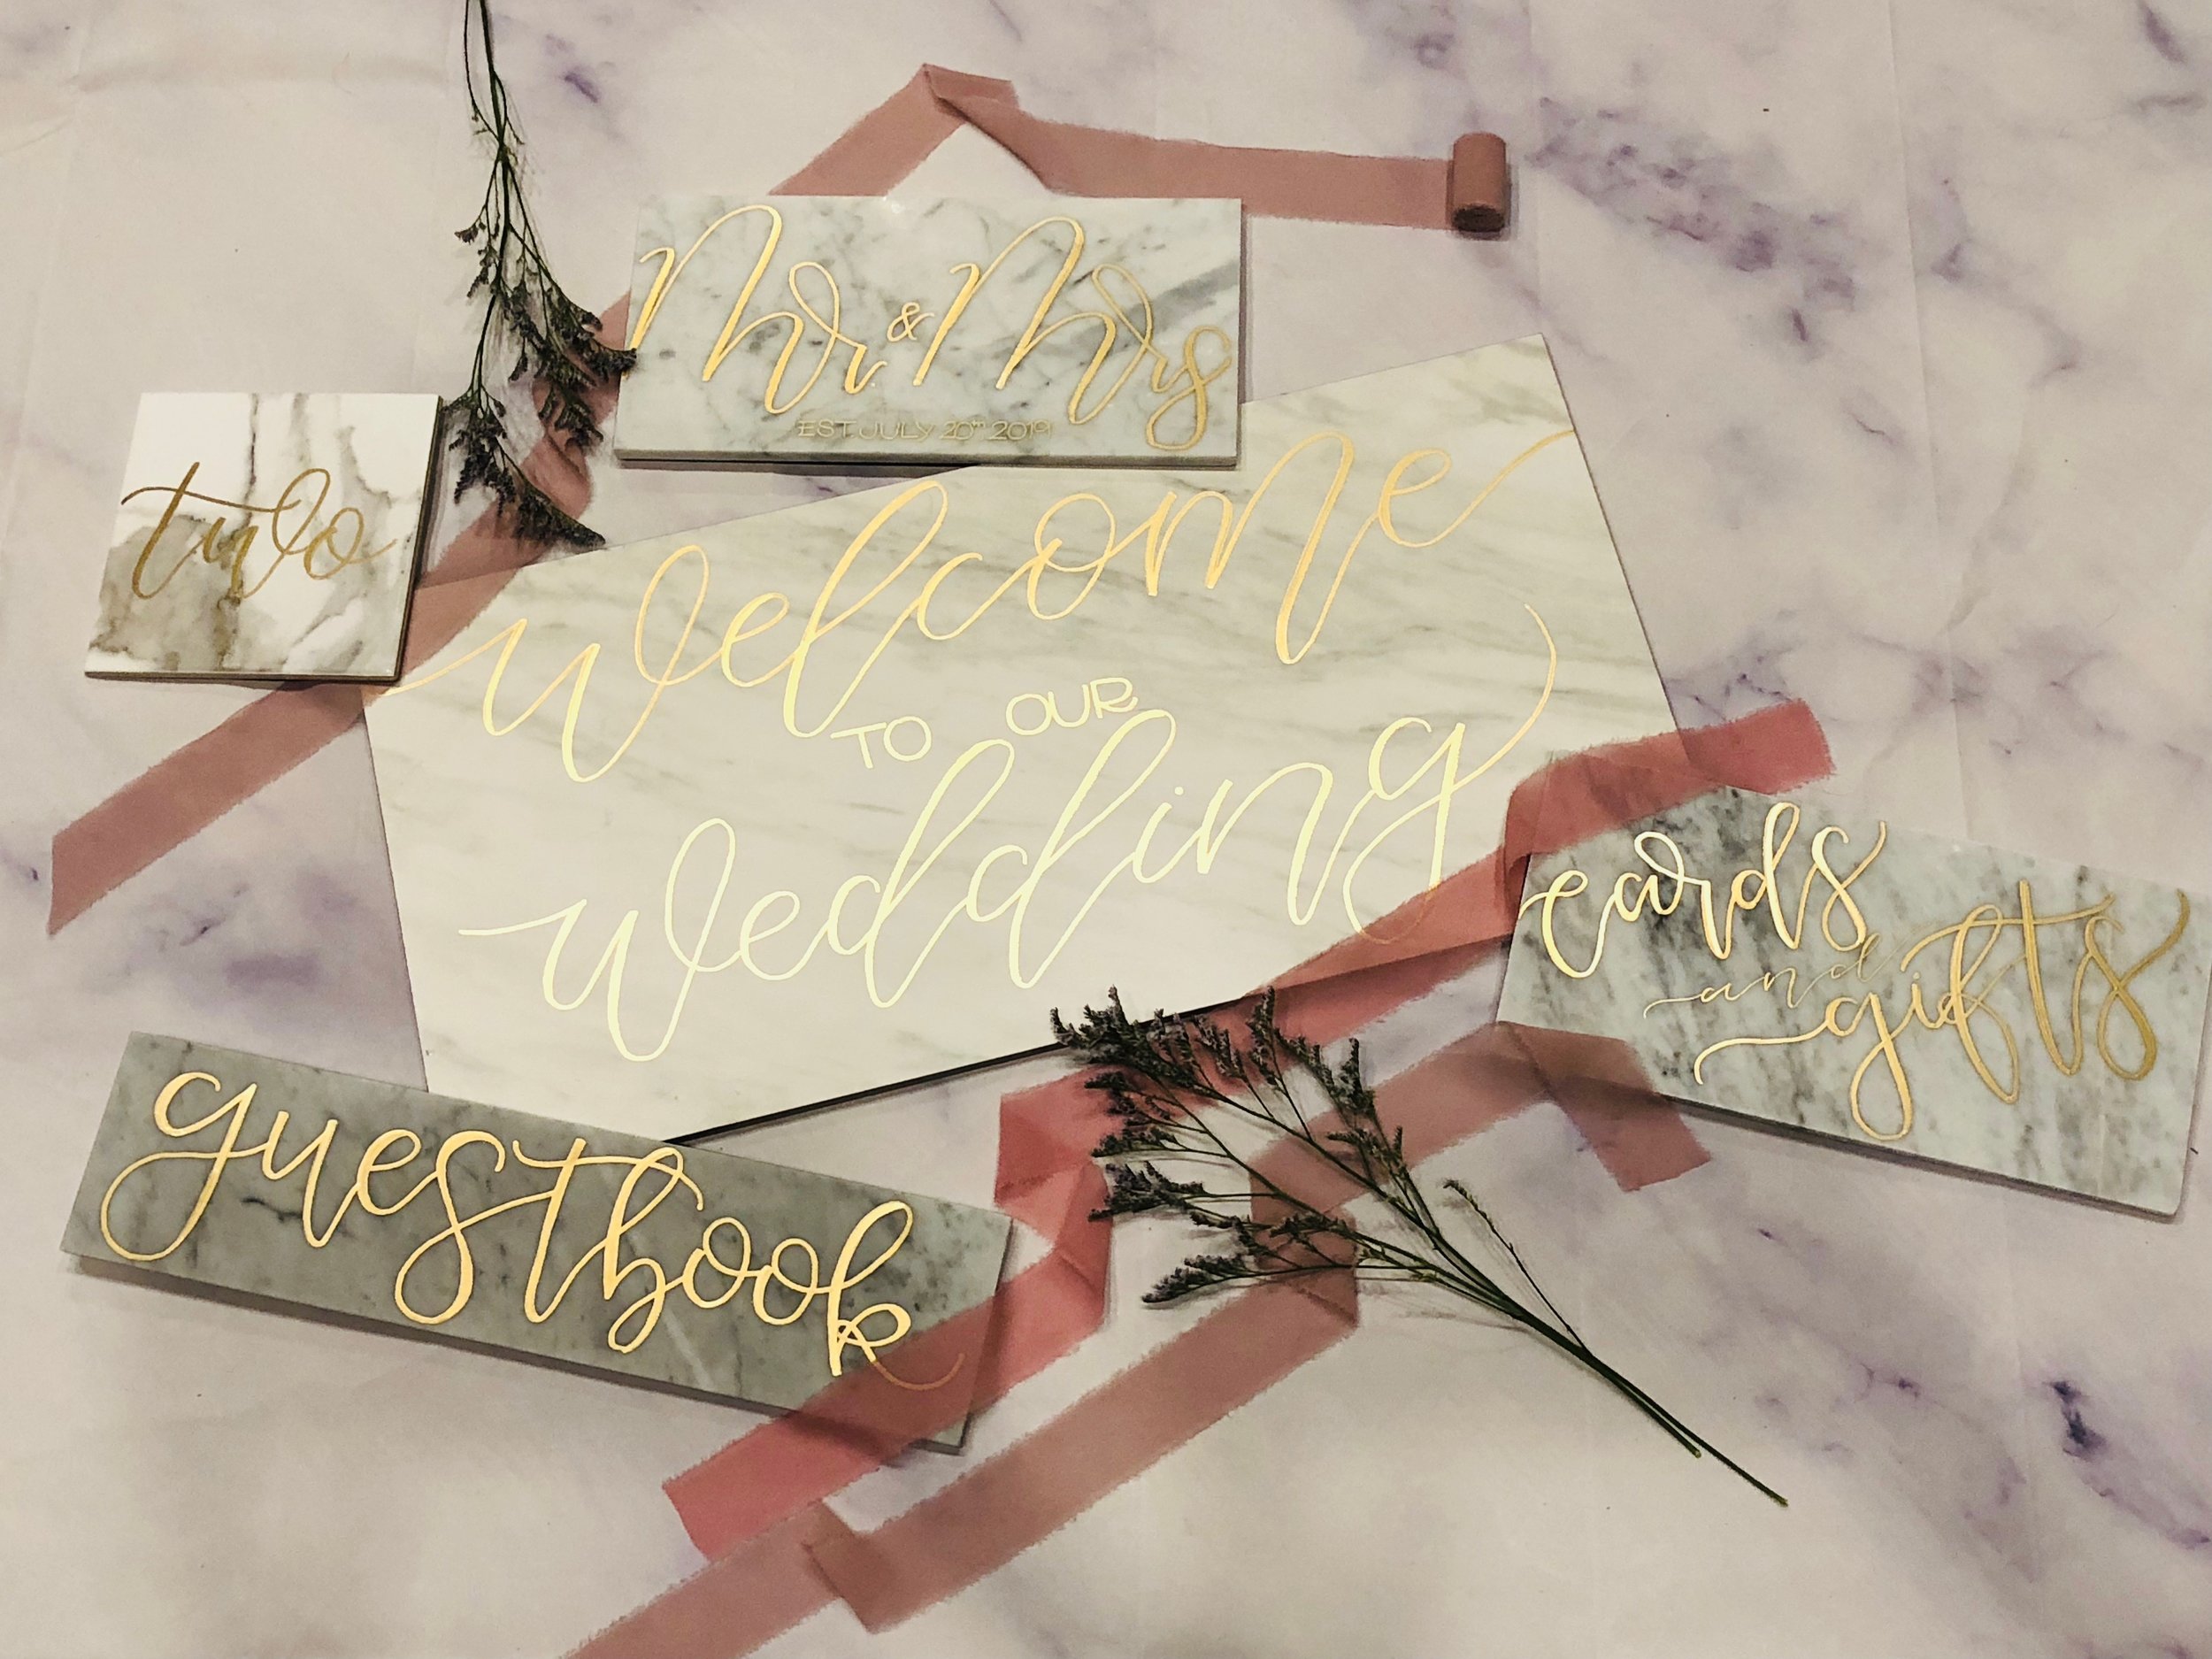 Mr & Mrs
EST. JULY 20th 2019
two
welcome
TO OUR
wedding
cards
and
gifts
guestbook